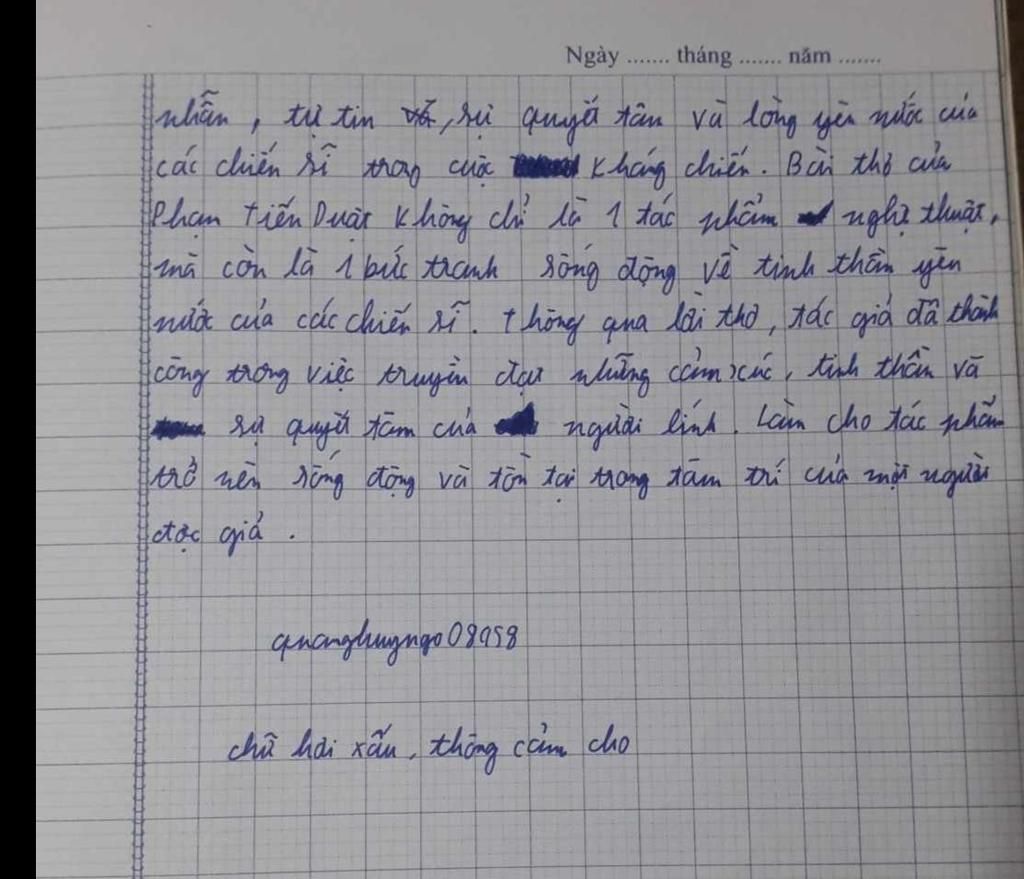 Ngày ....... tháng ....... năm .......
nhẫn, tự tin, sự quyết tâm và lòng yêu nước của
các chiến sĩ trong cuộc kháng chiến. Bài thơ của
Phạm Tiến Duật không chỉ là 1 tác phẩm nghệ thuật,
mà còn là 1 bức tranh sống động về tinh thần yêu
nước của các chiến sĩ. Thông qua lời thơ, tác giả đã thành
công trong việc truyền đạt những cảm xúc, tinh thần và
sự quyết tâm của người lính. Làm cho tác phẩm
trở nên sống động và tồn tại trong tâm trí của mọi người
đọc giả.
quanghuyngo08958
chữ hơi xấu, thông cảm cho